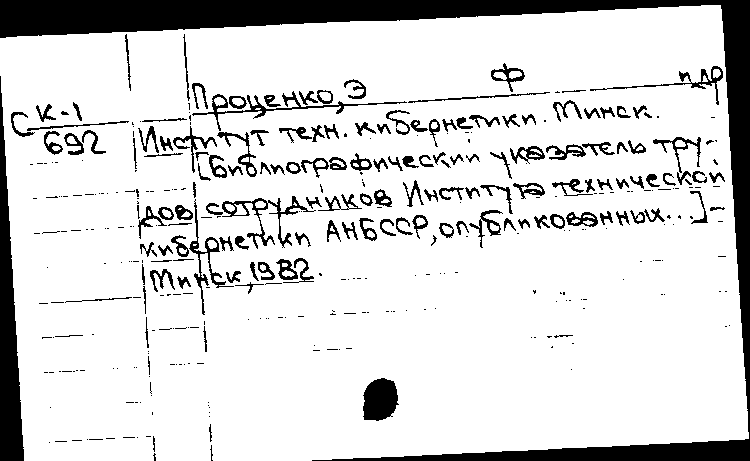 Проценко, Э Ф и др
С К-1
692
Институт техн. кибернетики. Минск.
[Библиографический указатель тру-
дов сотрудников Института технической
кибернетики АНБССР, опубликованных...] -
Минск, 1982.